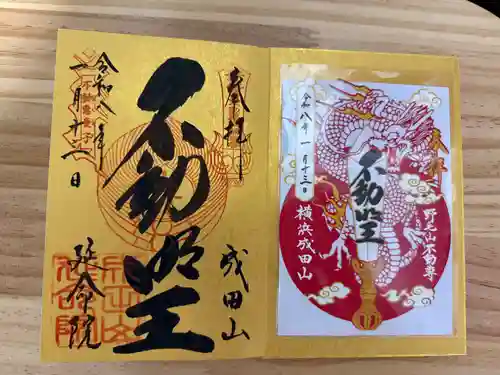 奉拝
成田山
不動明王
令和八年
一月十三日
延命院
奉拝
野毛山不動尊
不動明王
令和八年一月十三日
横浜成田山